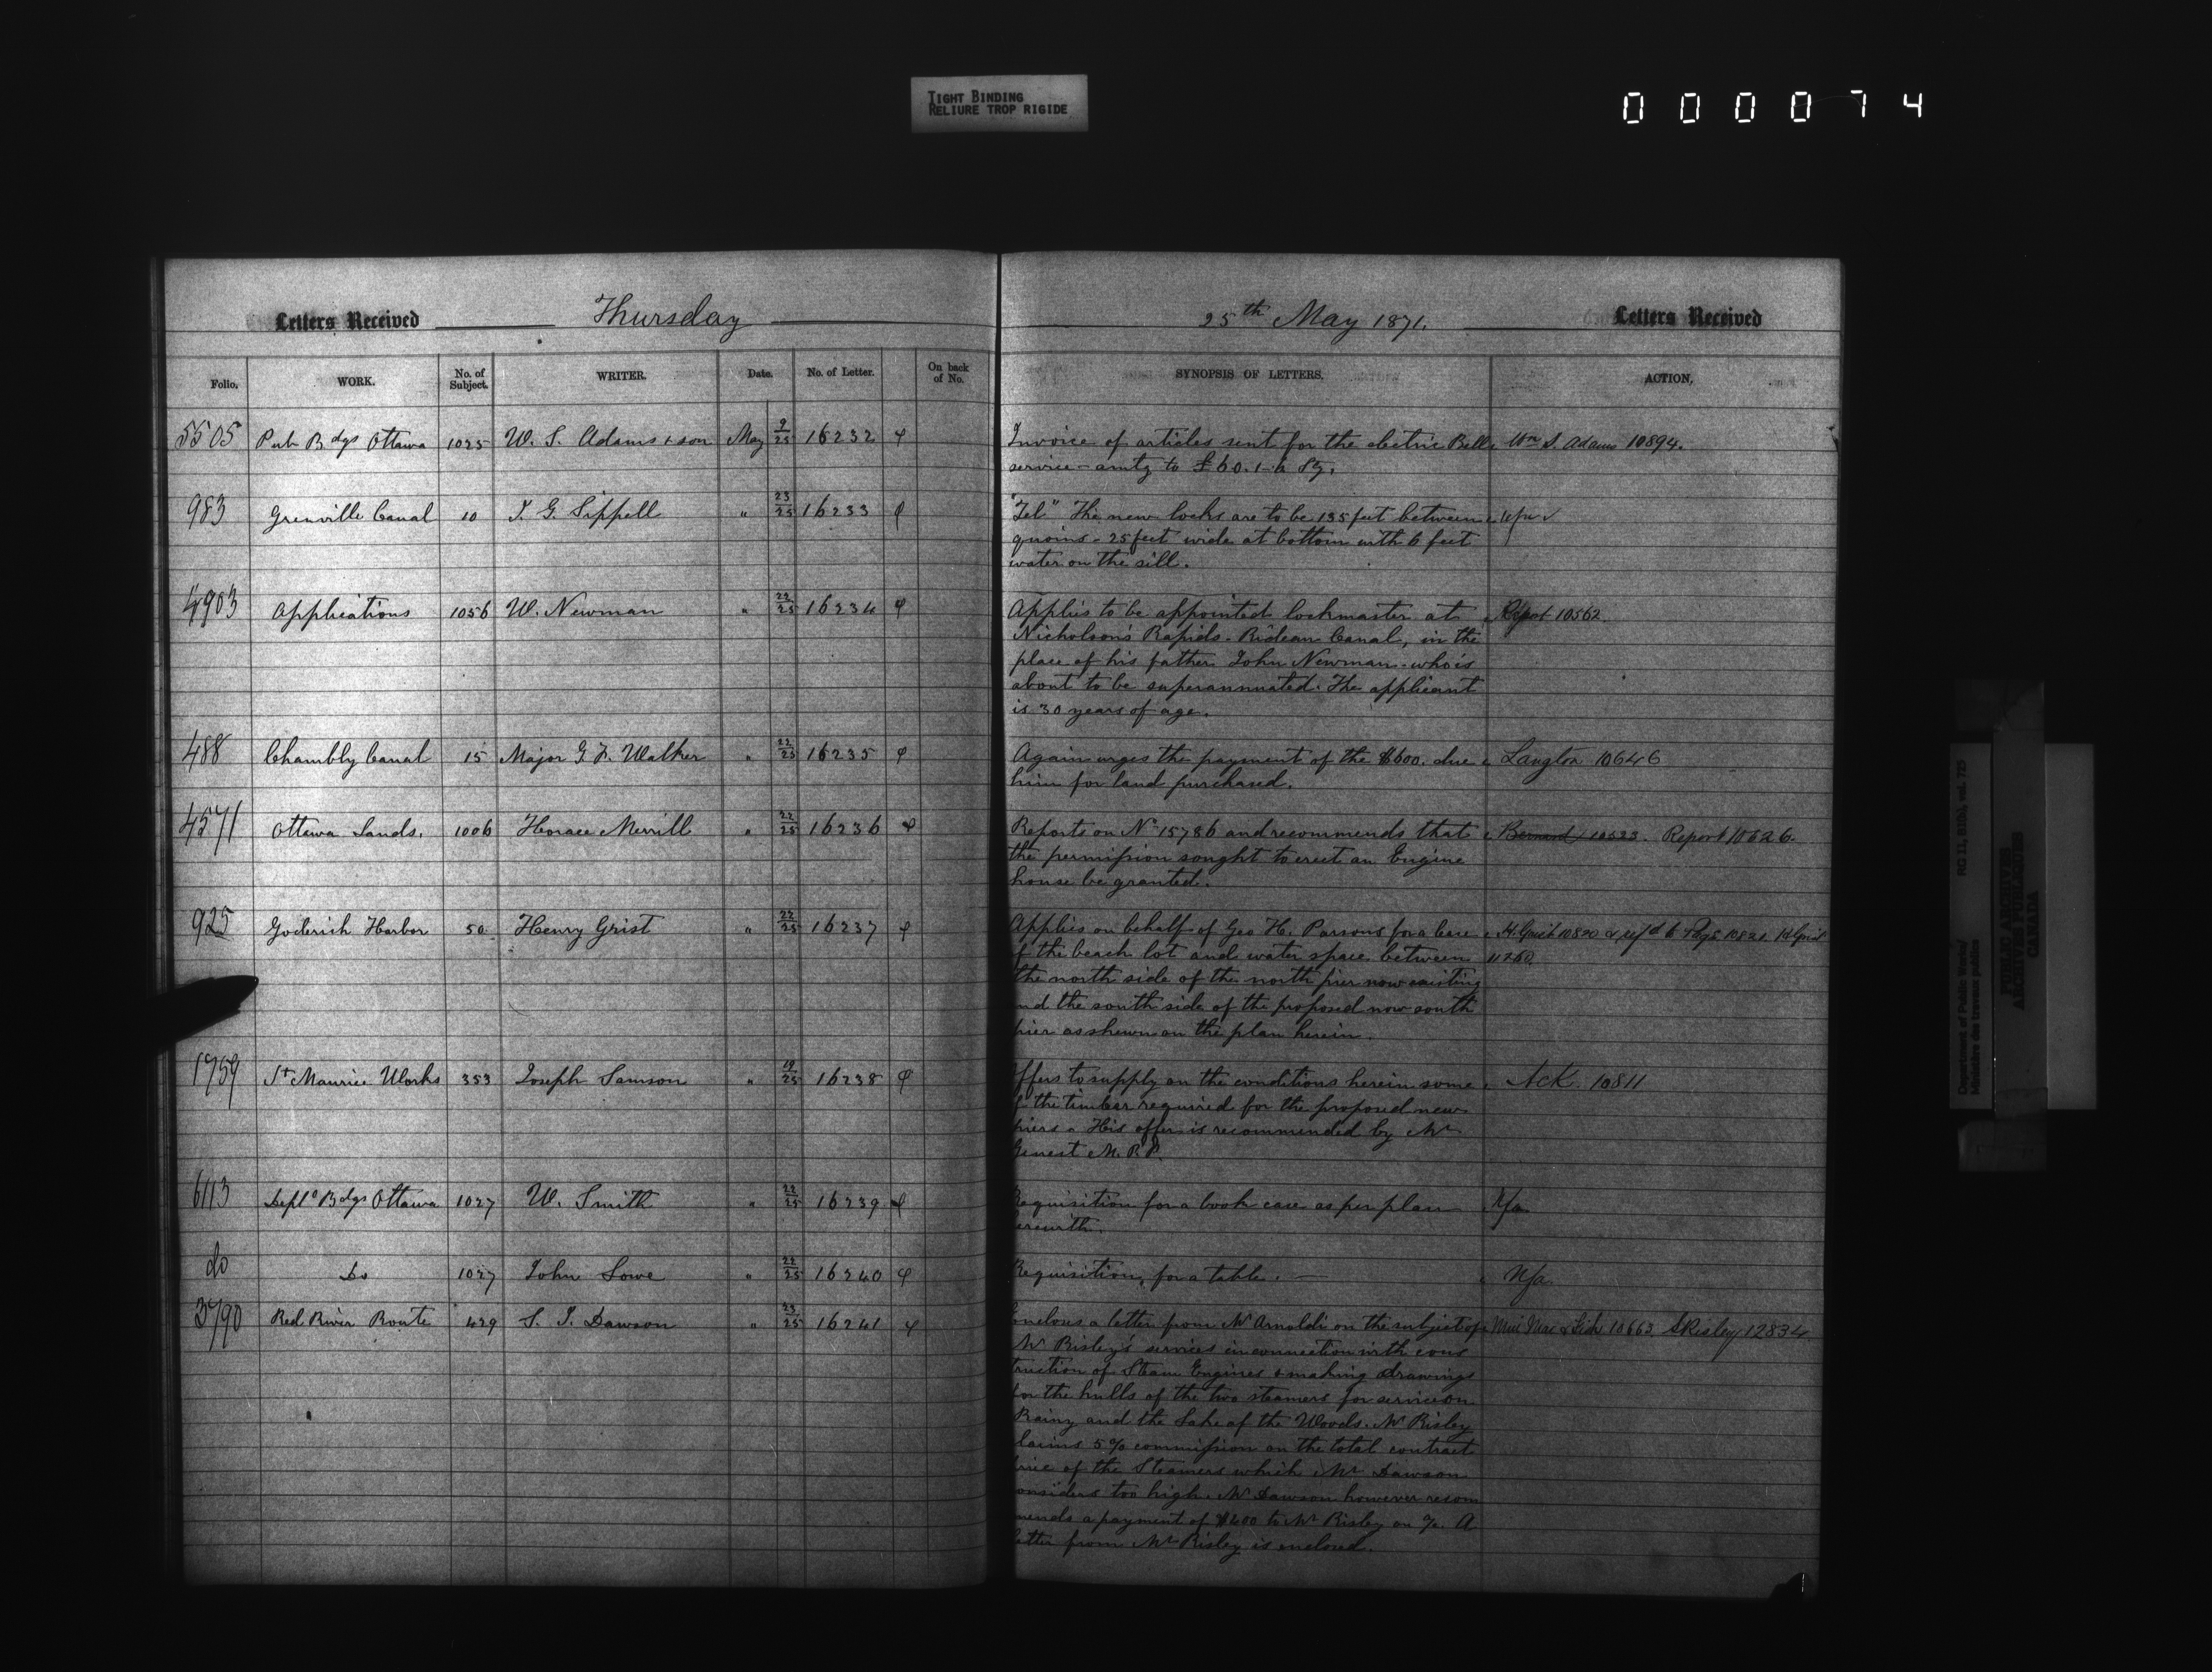 TIGHT BINDING
RELIURE TROP RIGIDE
0000074
Letters Received Thursday
Folio. WORK. No. of Subject. WRITER. Date. No. of Letter. On back of No.
5505 Pub Bdgs Ottawa 1025 W. S. Adams & son May 9/25 16232
983 Grenville Canal 10 J. G. Sippell " 23/25 16233
4903 Applications 1056 W. Newman " 22/25 16234
488 Chambly Canal 15 Major G. F. Walker " 22/25 16235
4571 Ottawa Lands. 1006 Horace Merrill " 22/25 16236
925 Goderich Harbor 50 Henry Grist " 22/25 16237
1759 St Maurice Works 353 Joseph Samson " 19/25 16238
6113 Deptl Bdgs Ottawa 1027 W. Smith " 22/25 16239
do Do 1027 John Lowe " 22/25 16240
3790 Red River Route 429 S. J. Dawson " 23/25 16241
25th May 1871. Letters Received
SYNOPSIS OF LETTERS. ACTION.
Invoice of articles sent for the electric Bell Wm S. Adams 10894.
service - amtg to £60.1.6 Sg.
"Tel" The new locks are to be 135 feet between
quoins - 25 feet wide at bottom with 6 feet
water on the sill.
Applies to be appointed lockmaster at Report 10562
Nicholson's Rapids - Rideau Canal, in the
place of his father John Newman - who is
about to be superannuated. The applicant
is 30 years of age.
Again urges the payment of the $600. due Langton 10646
him for land purchased.
Reports on No 15786 and recommends that Bernard 10523. Report 10626.
the permission sought to erect an Engine
house be granted.
Applies on behalf of Geo H. Parsons for a lease H. Grist 10820 & refd to Page 10821 H Grist
f the beach lot and water space between 11260.
the north side of the north pier now existing
nd the south side of the proposed now south
pier as shewn on the plan herein.
ffers to supply on the conditions herein some Ack. 10811
f the timber required for the proposed new
piers - His offer is recommended by Mr
Genest M.P.P.
Requisition for a book case as per plan N/a
erewith.
Requisition, for a table. N/a
nclous a letter from Mr Arnoldi on the subject of Min Mar & Fish 10663 S Risley 12834
Mr Risley's services in connection with cons
truction of Steam Engines & making drawings
for the hulls of the two steamers for service on
Rainy and the Lake of the Woods. Mr Risley
laims 5% commission on the total contract
rice of the Steamers which Mr Dawson
onsiders too high. Mr Dawson however recom
mends a payment of $200 to Mr Risley on %. A
letter from Mr Risley is enclosed.
Department of Public Works/
Ministère des travaux publics
RG 11, B1(b), vol. 725
PUBLIC ARCHIVES
ARCHIVES PUBLIQUES
CANADA